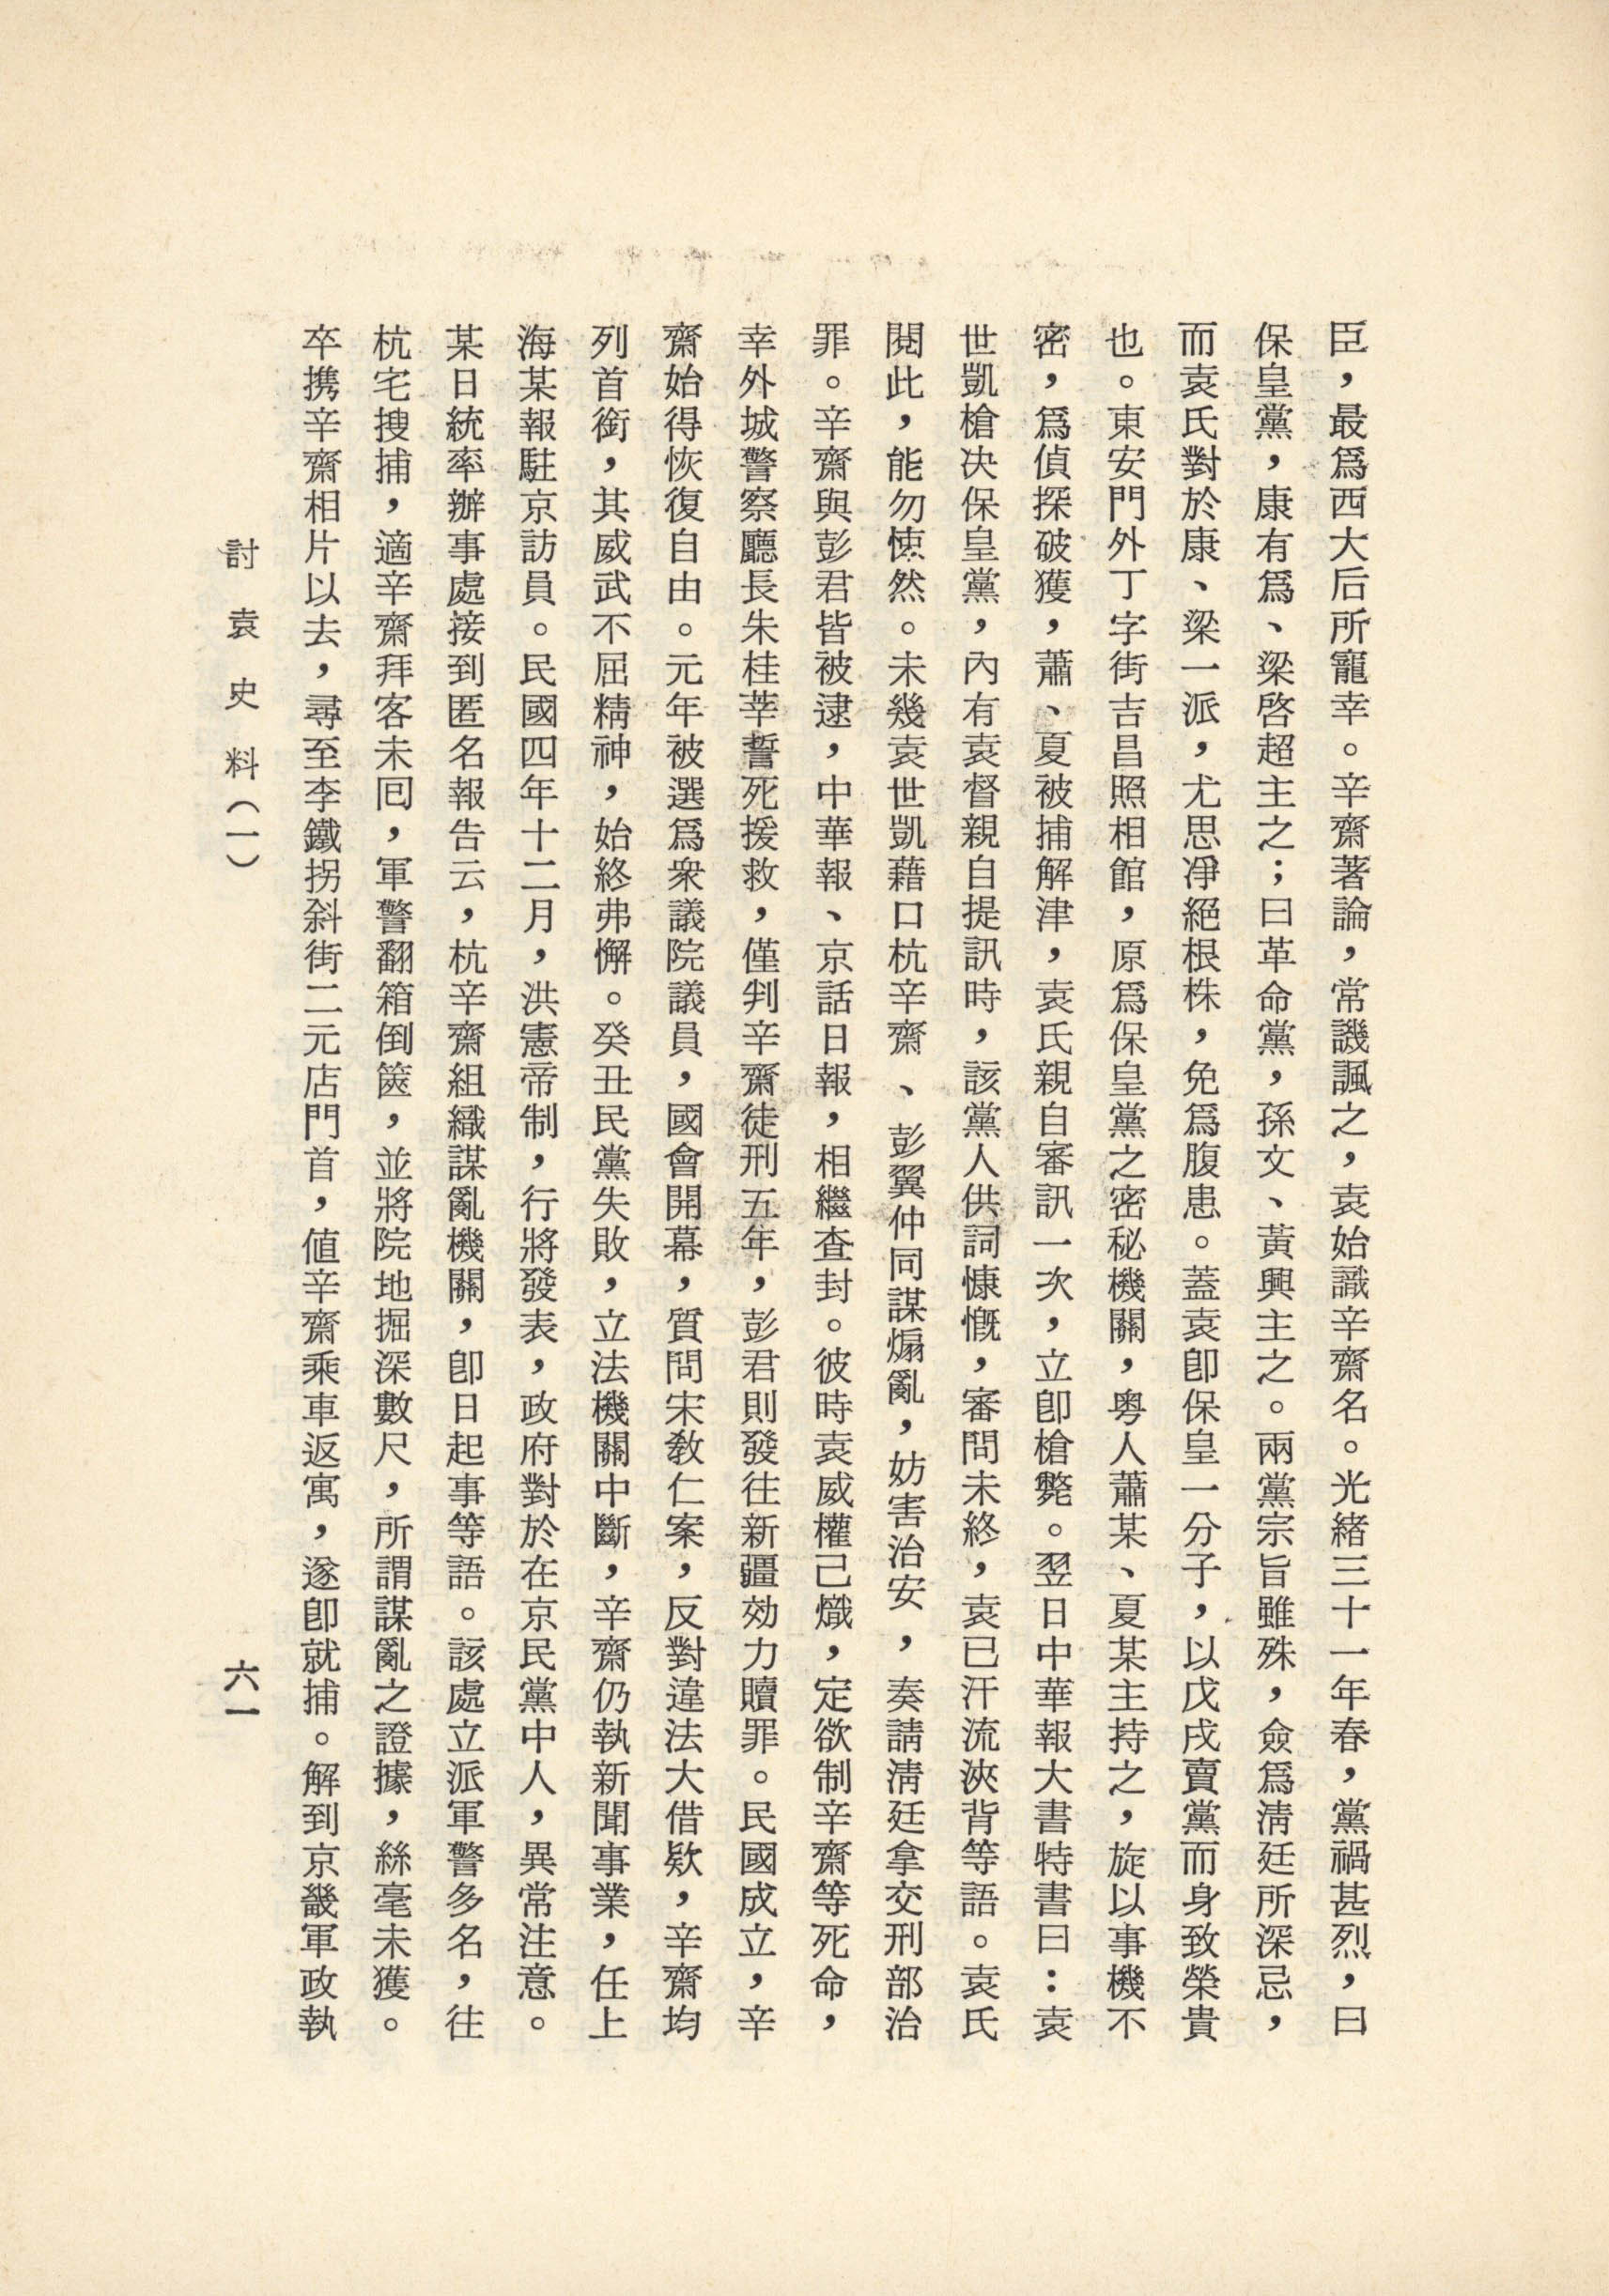 臣，最爲西大后所寵幸。辛齋著論，常譏諷之，袁始識辛齋名。光緒三十一年春，黨禍甚烈，曰
保皇黨，康有爲、梁啓超主之；曰革命黨，孫文、黃興主之。兩黨宗旨雖殊，僉爲淸廷所深忌，
而袁氏對於康、梁一派，尤思凈絕根株，免爲腹患。蓋袁卽保皇一分子，以戊戌賣黨而身致榮貴
也。東安門外丁字街吉昌照相館，原爲保皇黨之密秘機關，粵人蕭某、夏某主持之，旋以事機不
密，爲偵探破獲，蕭、夏被捕解津，袁氏親自審訊一次，立卽槍斃。翌日中華報大書特書曰：袁
世凱槍決保皇黨，內有袁督親自提訊時，該黨人供詞慷慨，審問未終，袁已汗流浹背等語。袁氏
閱此，能勿悚然。未幾袁世凱藉口杭辛齋、彭翼仲同謀煽亂，妨害治安，奏請淸廷拿交刑部治
罪。辛齋與彭君皆被逮，中華報、京話日報，相繼查封。彼時袁威權己熾，定欲制辛齋等死命，
幸外城警察廳長朱桂莘誓死援救，僅判辛齋徒刑五年，彭君則發往新疆効力贖罪。民國成立，辛
齋始得恢復自由。元年被選爲衆議院議員，國會開幕，質問宋敎仁案，反對違法大借欵，辛齋均
列首銜，其威武不屈精神，始終弗懈。癸丑民黨失敗，立法機關中斷，辛齋仍執新聞事業，任上
海某報駐京訪員。民國四年十二月，洪憲帝制，行將發表，政府對於在京民黨中人，異常注意。
某日統率辦事處接到匿名報告云，杭辛齋組織謀亂機關，卽日起事等語。該處立派軍警多名，往
杭宅搜捕，適辛齋拜客未囘，軍警翻箱倒篋，並將院地掘深數尺，所謂謀亂之證據，絲毫未獲。
卒携辛齋相片以去，尋至李鐵拐斜街二元店門首，値辛齋乘車返寓，遂卽就捕。解到京畿軍政執
討袁史料（一）
六一